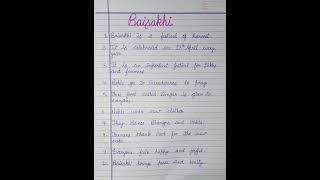 Baisakhi
1. Baisakhi is a festival of harvest.
2. It is celebrated on 13th April every
year.
3. It is an important festival for Sikhs
and farmers.
4. People go to Gurudwaras to pray.
5. Free food called langar is given to
everyone.
6. People wear new clothes.
7. They dance Bhangra and Gidda.
8. Farmers thank God for the new
crops.
9. Everyone feels happy and joyful.
10. Baisakhi brings peace and unity.